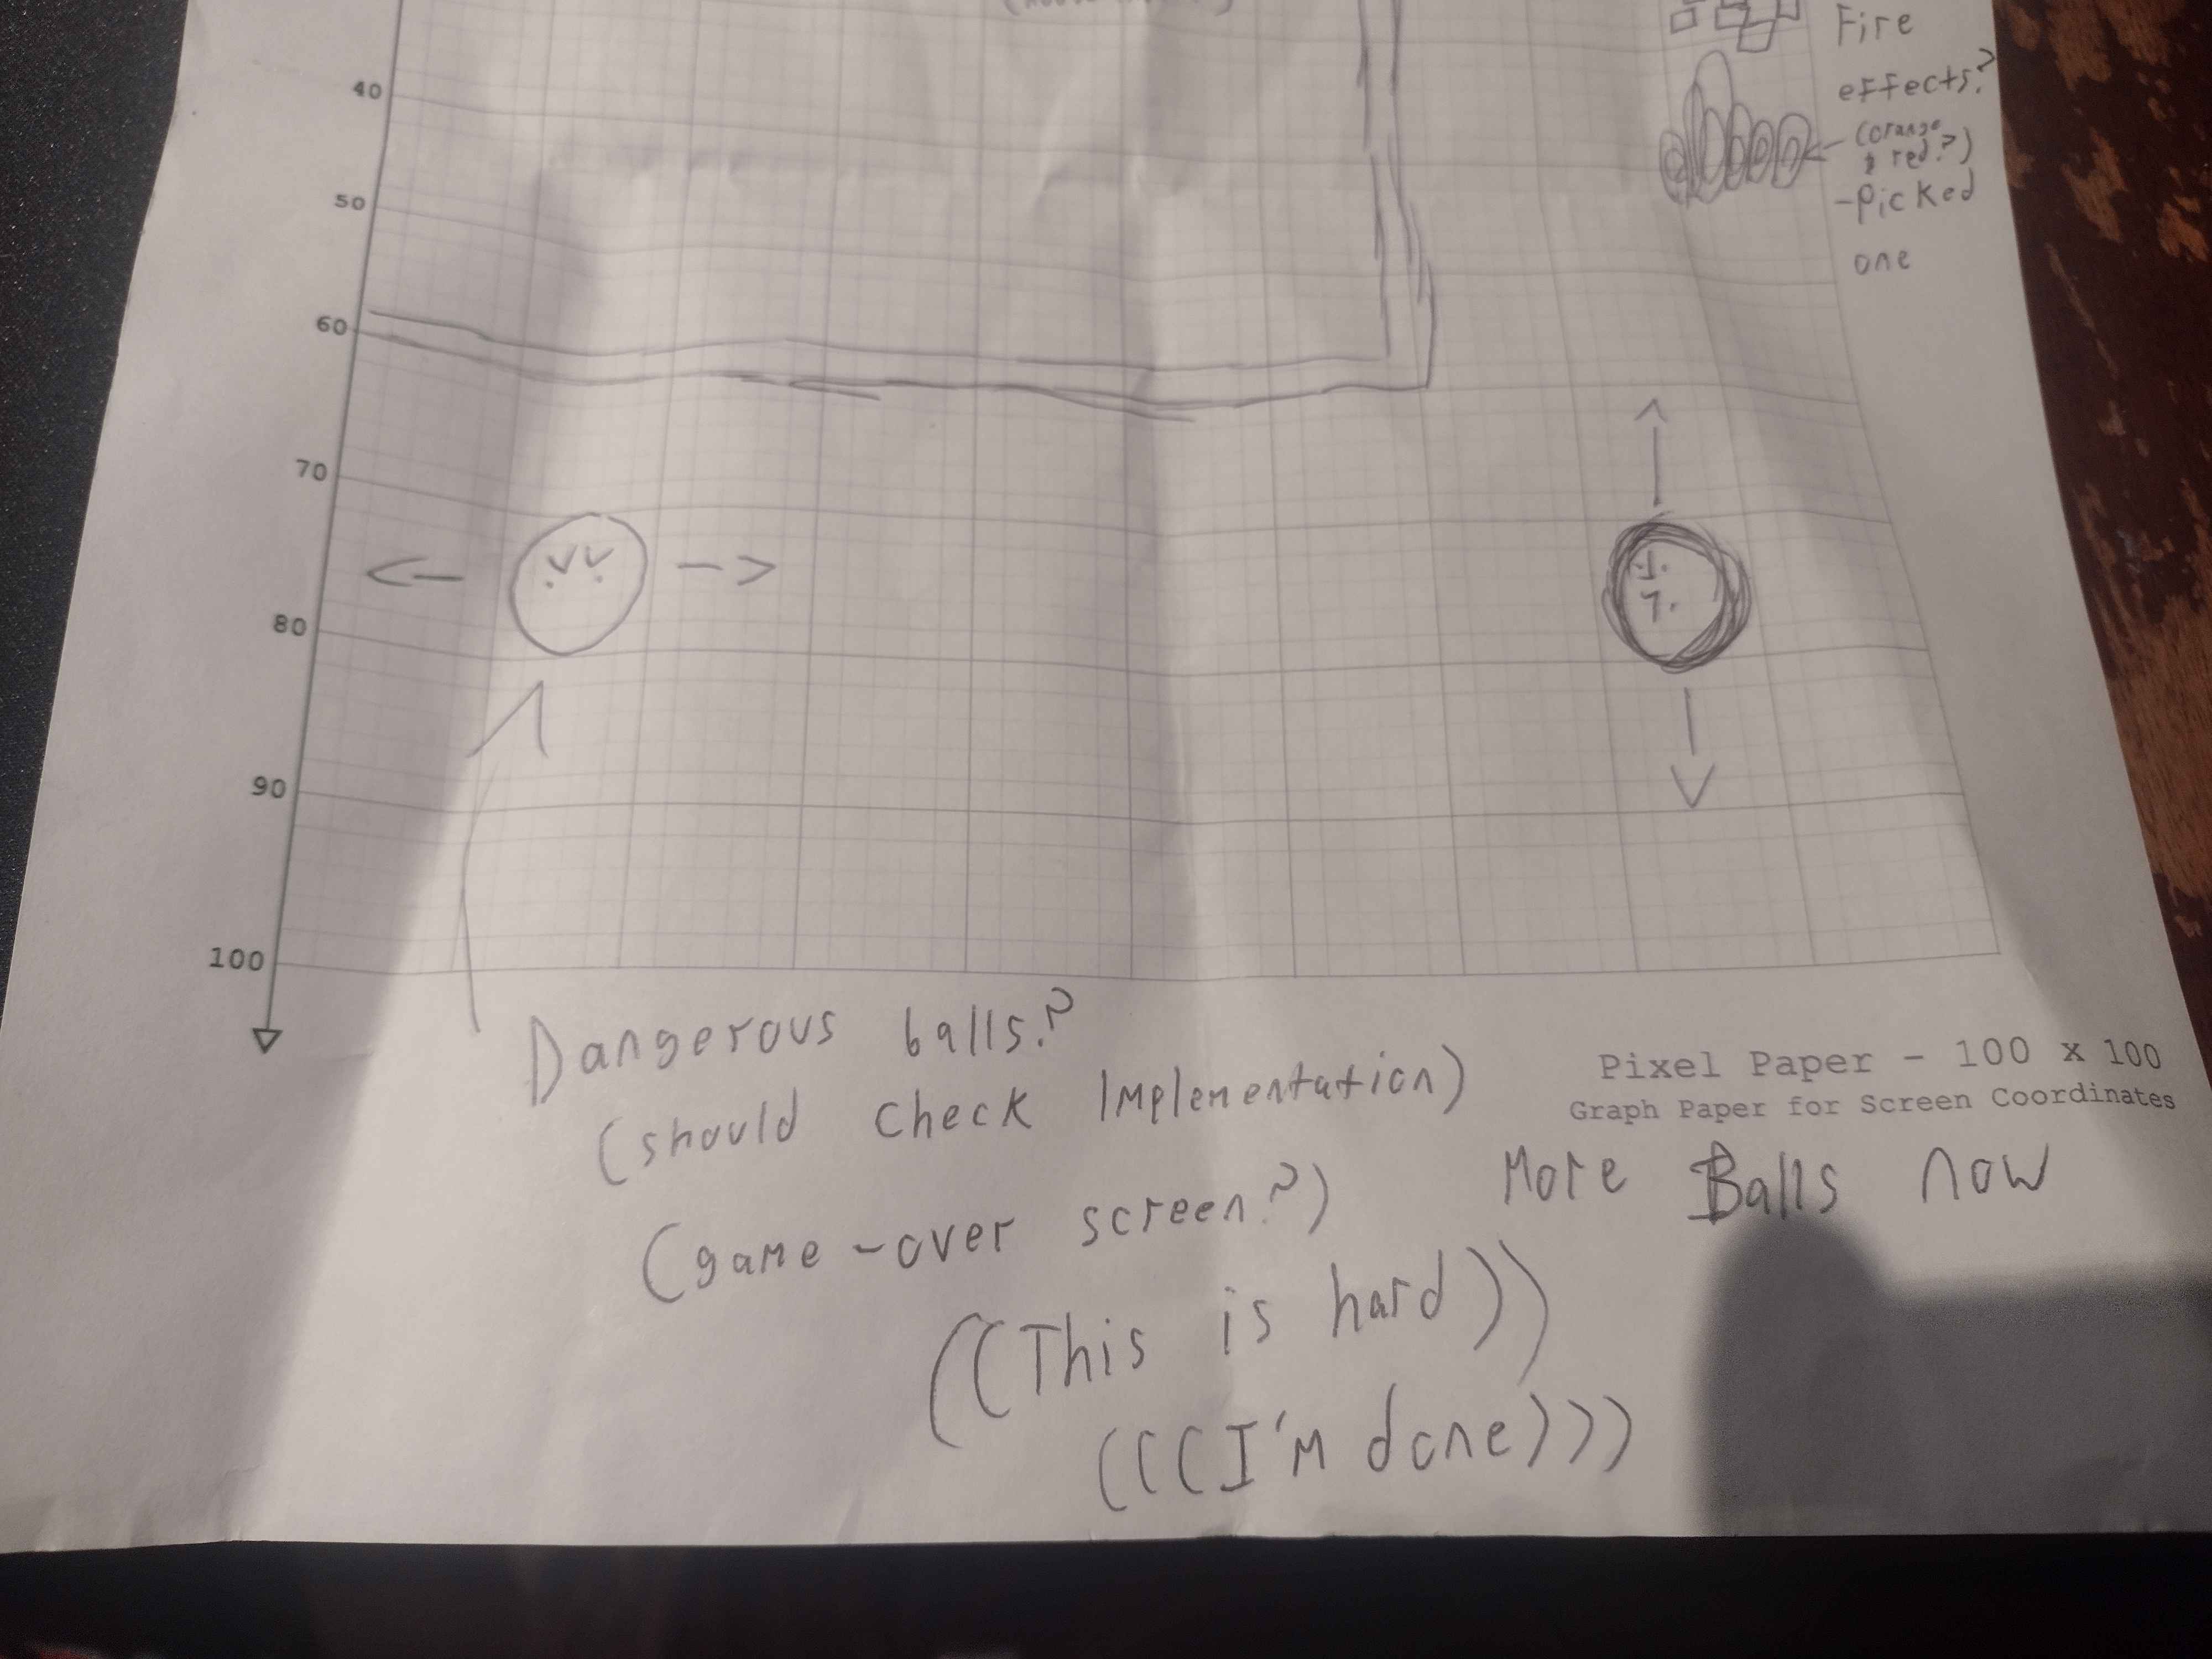 40
Fire
effects?
(orange
& red?)
-picked
one
50
60
70
80
90
100
Dangerous balls?
(should check Implementation)
(game-over screen?)
((This is hard))
(((I'm done)))
Pixel Paper - 100 x 100
Graph Paper for Screen Coordinates
More Balls now